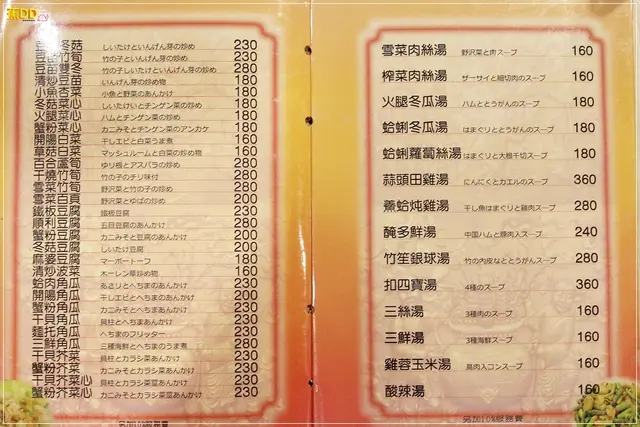 蕉DD
豆苗冬菇 しいたけといんげん芽の炒め 230
豆苗竹筍 竹の子といんげん芽の炒め 230
豆苗雙冬 竹の子しいたけといんげん芽の炒め 280
清炒豆苗 いんげん芽の炒め物 180
小魚杏菜 小魚と野菜のあんかけ 180
冬菇菜心 しいたけいとチンゲン菜の炒め 180
火腿菜心 ハムとチンゲン菜の炒め 180
蟹粉菜心 カニみそとチンゲン菜のアンカケ 180
開陽白菜 干しエビと白菜うま煮 160
草菇白菜 マッシュルームと白菜の炒め物 160
百合蘆筍 ゆり根とアスパラの炒め 280
干燒竹筍 竹の子のチリ味付 230
雪菜竹筍 野沢菜と竹の子の炒め 280
雪菜百頁 野沢菜とゆばの炒め 230
鐵板豆腐 鐵板豆腐 230
順利豆腐 五目豆腐のあんかけ 280
蟹粉豆腐 カニみそと豆腐のあんかけ 200
冬菇豆腐 しいたけ豆腐 200
麻婆豆腐 マーボートーフ 180
清炒波菜 木ーレン草炒め物 160
蛤肉角瓜 あさりとへちまのあんかけ 230
開陽角瓜 干しエビとへちまのあんかけ 200
蟹粉角瓜 カニみそとへちまあんかけ 230
干貝角瓜 貝柱とへちまあんかけ 230
麵托角瓜 へちまのフリッター 230
三鮮角瓜 三種海鮮とへちまのうま煮 280
干貝芥菜 貝柱とカラシ菜あんかけ 230
蟹粉芥菜 カニみそとカラシ菜あんかけ 230
干貝芥菜心 貝柱とカラシ菜茎あんかけ 230
蟹粉芥菜心 カニみそとカラシ菜茎あんかけ 230
另加10%服務費
雪菜肉絲湯 野沢菜と肉スープ 160
榨菜肉絲湯 ザーサイと細切肉のスープ 160
火腿冬瓜湯 ハムととうがんのスープ 180
蛤蜊冬瓜湯 はまぐりととうがんのスープ 180
蛤蜊蘿蔔絲湯 はまぐりと大根千切スープ 180
蒜頭田雞湯 にんにくとカエルのスープ 360
鱶蛤炖雞湯 干し魚はまぐりと鶏肉スープ 280
醃多鮮湯 中国ハムと豚肉入スープ 240
竹笙銀球湯 竹の内皮なととうがんスープ 280
扣四寶湯 4種のスープ 360
三絲湯 3種肉のスープ 160
三鮮湯 3種海鮮スープ 160
雞蓉玉米湯 鳥肉入コンスープ 160
酸辣湯 160
另加10%服務費